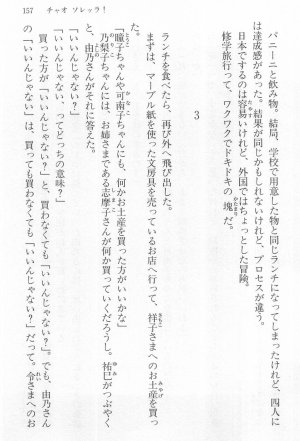 157　チャオ ソレッラ!
パニーニと飲み物。結局、学校で用意した物と同じランチになってしまったけれど、四人に
は達成感があった。結果が同じかもしれないけれど、プロセスが違う。
日本でするのは容易いけれど、外国ではちょっとした冒険。
修学旅行って、ワクワクでドキドキの塊だ。
3
ランチを食べたら、再び外へ飛び出した。
まずは、マーブル紙を使った文房具を売っているお店へ行って、祥子さまへのお土産を買っ
た。
「瞳子ちゃんや可南子ちゃんにも、何かお土産を買った方がいいかな」
乃梨子ちゃんには、お姉さまである志摩子さんが何か買っていくだろうし。祐巳がつぶやく
と、由乃さんがそれに答えた。
「いいんじゃない?」
「いいんじゃない、ってどっちの意味?」
買った方が「いいんじゃない?」と、買わなくても「いいんじゃない?」。でも、由乃さん
の「いいんじゃない?」は、買っても買わなくても「いいんじゃない?」だって。令さまへのお